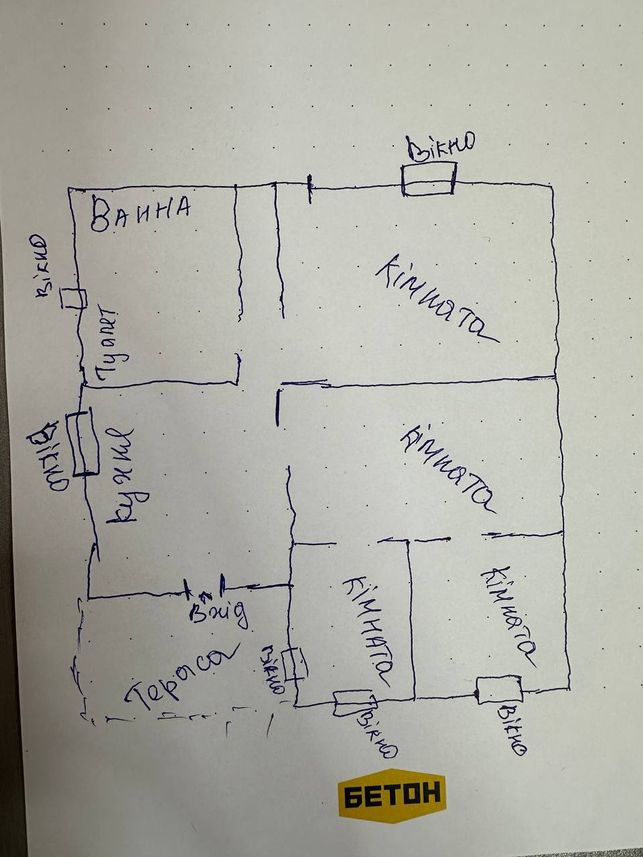 Вікно
Ванна
Вікно
Кімната
Туалет
Вікно
Кухня
Кімната
Кімната
Кімната
Вхід
Тераса
Вікно
Вікно
Вікно
БЕТОН